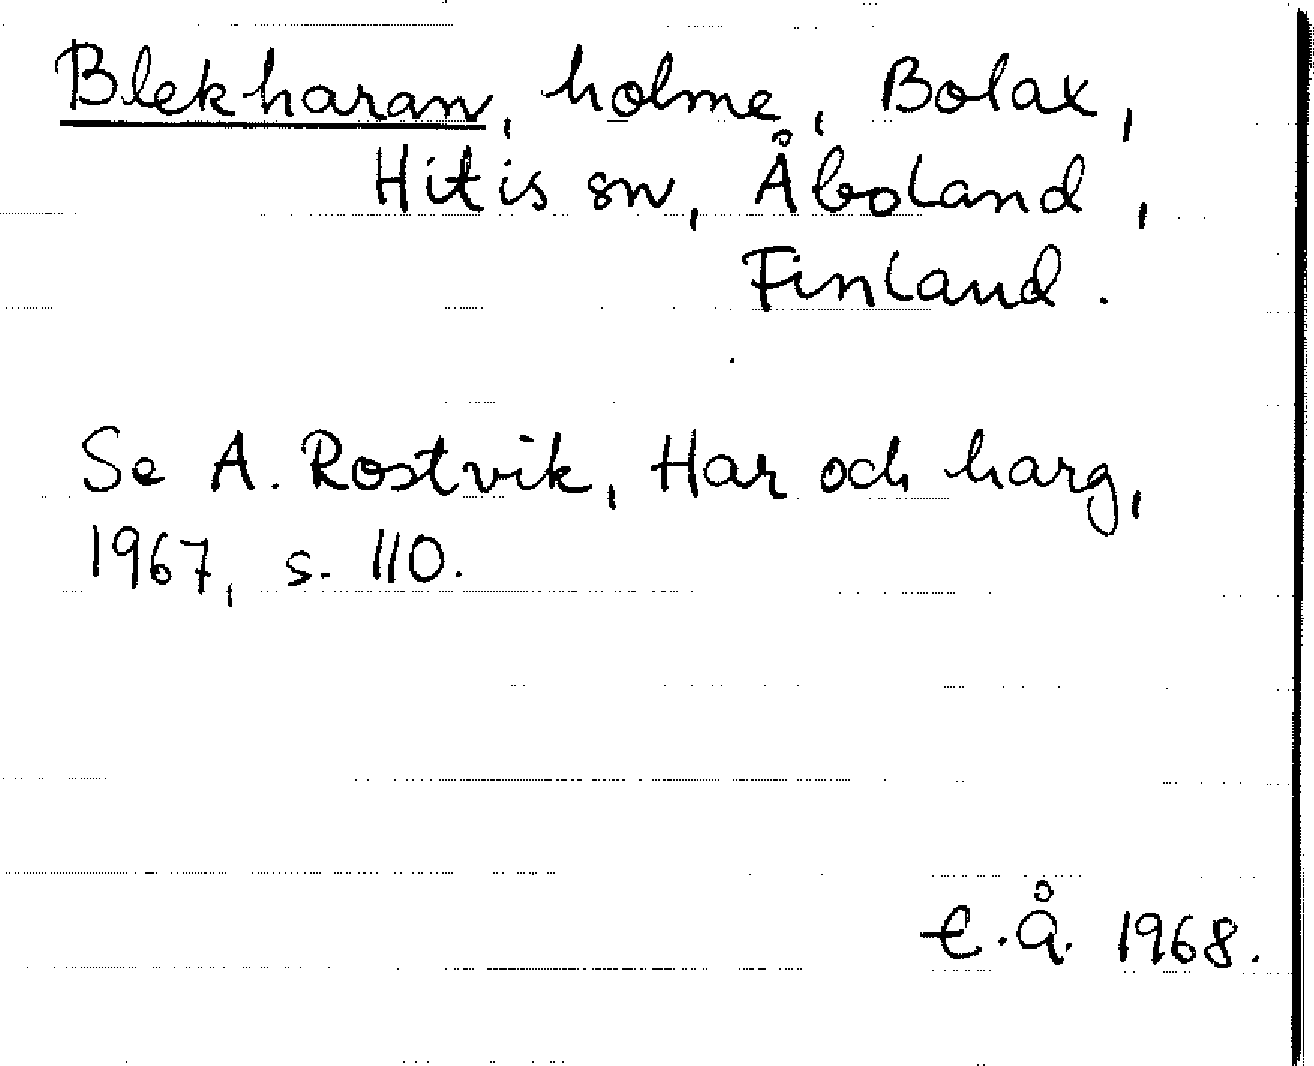 Blekharan, holme, Bolax,
Hitis sn, Åboland,
Finland.
Se A. Rostvik, Har och harg,
1967, s. 110.
t.Å. 1968.